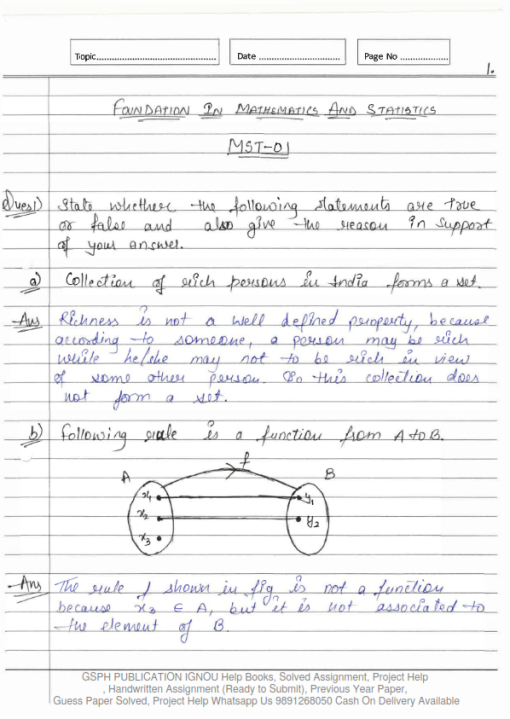 Topic.......................................... Date ............................ Page No .................
1.
FOUNDATION IN MATHEMATICS AND STATISTICS
MST-01
Ques1) State whether the following statements are true
or false and also give the reason in support
of your answer.
a) Collection of rich persons in India forms a set.
Ans Richness is not a well defined property, because
according to someone, a person may be rich
while he/she may not to be rich in view
of some other person. So this collection does
not form a set.
b) Following rule is a function from A to B.
f
A B
x1 y1
x2 y2
x3
Ans The rule f shown in fig is not a function
because x3 ∈ A, but it is not associated to
the element of B.
GSPH PUBLICATION IGNOU Help Books, Solved Assignment, Project Help
, Handwritten Assignment (Ready to Submit), Previous Year Paper,
Guess Paper Solved, Project Help Whatsapp Us 9891268050 Cash On Delivery Available